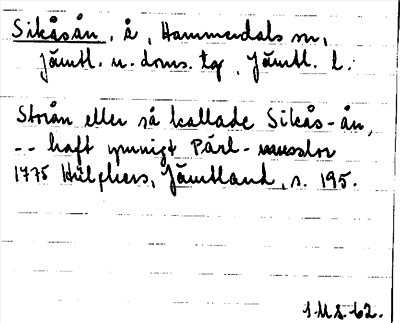 Sikåsån, å, Hammerdals sn,
Jämtl. n. doms. tg, Jämtl. l.
Storån eller så kallade Sikås-ån,
-- haft ymnigt Pärl-musslor
1775 Hülphers, Jämtland, s. 195.
I.M.S. 62.